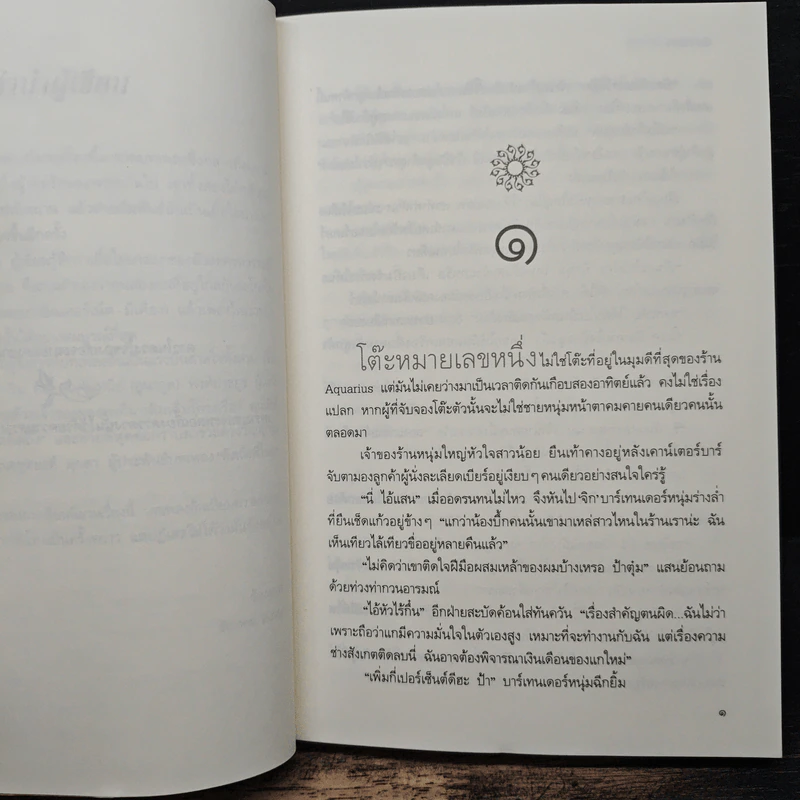 ๑
โต๊ะหมายเลขหนึ่ง ไม่ใช่โต๊ะที่อยู่ในมุมดีที่สุดของร้าน
Aquarius แต่มันไม่เคยว่างมาเป็นเวลาติดกันเกือบสองอาทิตย์แล้ว คงไม่ใช่เรื่อง
แปลก หากผู้ที่จับจองโต๊ะตัวนั้นจะไม่ใช่ชายหนุ่มหน้าตาคมคายคนเดียวคนนั้น
ตลอดมา
เจ้าของร้านหนุ่มใหญ่หัวใจสาวน้อย ยืนเท้าคางอยู่หลังเคาน์เตอร์บาร์
จับตามองลูกค้าผู้นั่งละเลียดเบียร์อยู่เงียบๆ คนเดียวอย่างสนใจใคร่รู้
“นี่ ไอ้แสน” เมื่ออดรนทนไม่ไหว จึงหันไป ‘จิก’ บาร์เทนเดอร์หนุ่มร่างล่ำ
ที่ยืนเช็ดแก้วอยู่ข้างๆ “แกว่าน้องบึ้กคนนั้นเขามาเหล่สาวไหนในร้านเราน่ะ ฉัน
เห็นเทียวไล้เทียวขื่ออยู่หลายคืนแล้ว”
“ไม่คิดว่าเขาติดใจฝีมือผสมเหล้าของผมบ้างเหรอ ป้าตุ่ม” แสนย้อนถาม
ด้วยท่วงท่ากวนอารมณ์
“ไอ้หัวไร้กึ๋น” อีกฝ่ายสะบัดค้อนใส่ทันควัน “เรื่องสำคัญตนผิด...ฉันไม่ว่า
เพราะถือว่าแกมีความมั่นใจในตัวเองสูง เหมาะที่จะทำงานกับฉัน แต่เรื่องความ
ช่างสังเกตติดลบนี่ ฉันอาจต้องพิจารณาเงินเดือนของแกใหม่”
“เพิ่มกี่เปอร์เซ็นต์ดีฮะ ป้า” บาร์เทนเดอร์หนุ่มฉีกยิ้ม
๑